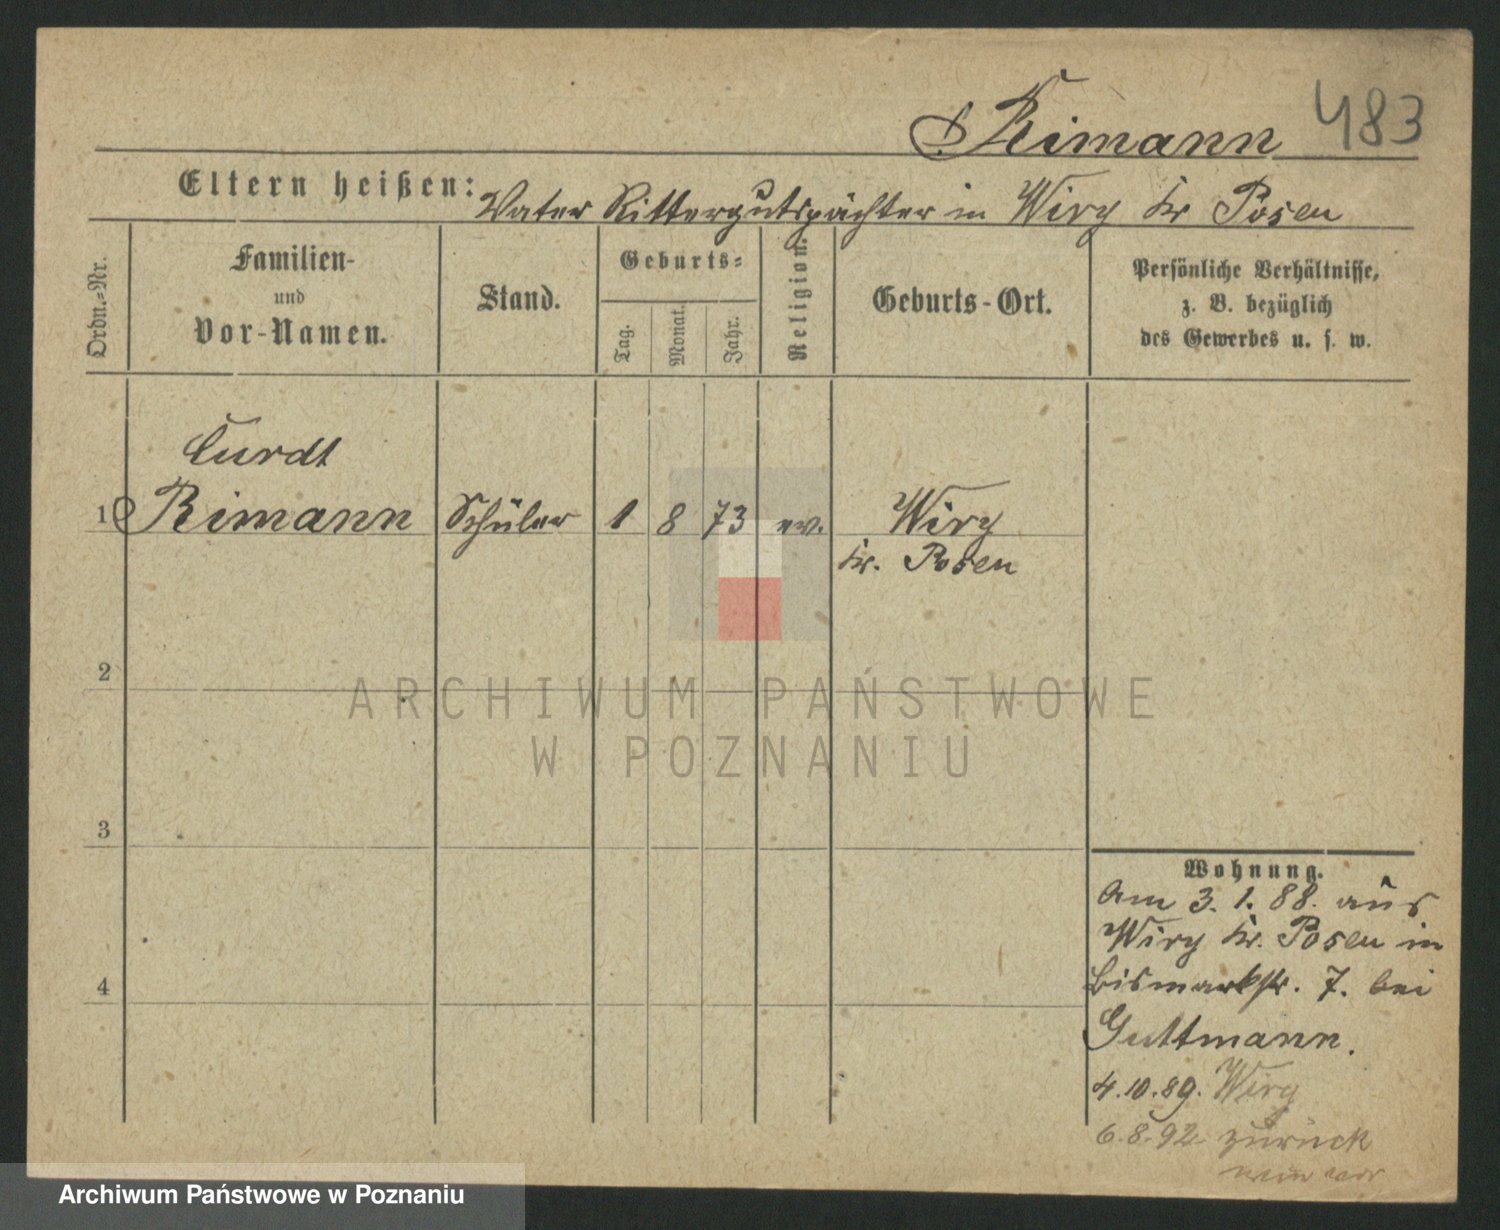 Reimann 483
Eltern heißen: Vater Rittergutspächter in Wiry Kr Posen
Ordn.-Nr.
Familien-
und
Vor-Namen.
Stand.
Geburts-
Tag.
Monat.
Jahr.
Religion.
Geburts-Ort.
Persönliche Verhältnisse,
z. B. bezüglich
des Gewerbes u. s. w.
Curdt
1 Reimann Schüler 1 8 73 ev. Wiry
Kr. Posen
2
ARCHIWUM PAŃSTWOWE
W POZNANIU
3
4
Wohnung.
Am 3. 1. 88. aus
Wiry Kr. Posen in
Bismarkstr. 7. bei
Guttmann.
4.10.89. Wiry
6.8.92 zurück
Archiwum Państwowe w Poznaniu